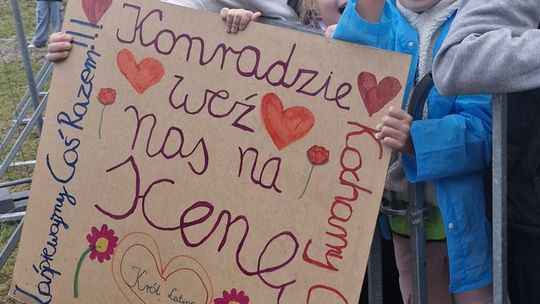 Konradzie
weź
nas na
scenę
Zaśpiewajmy Coś Razem!!!
Kochamy
Król Latino